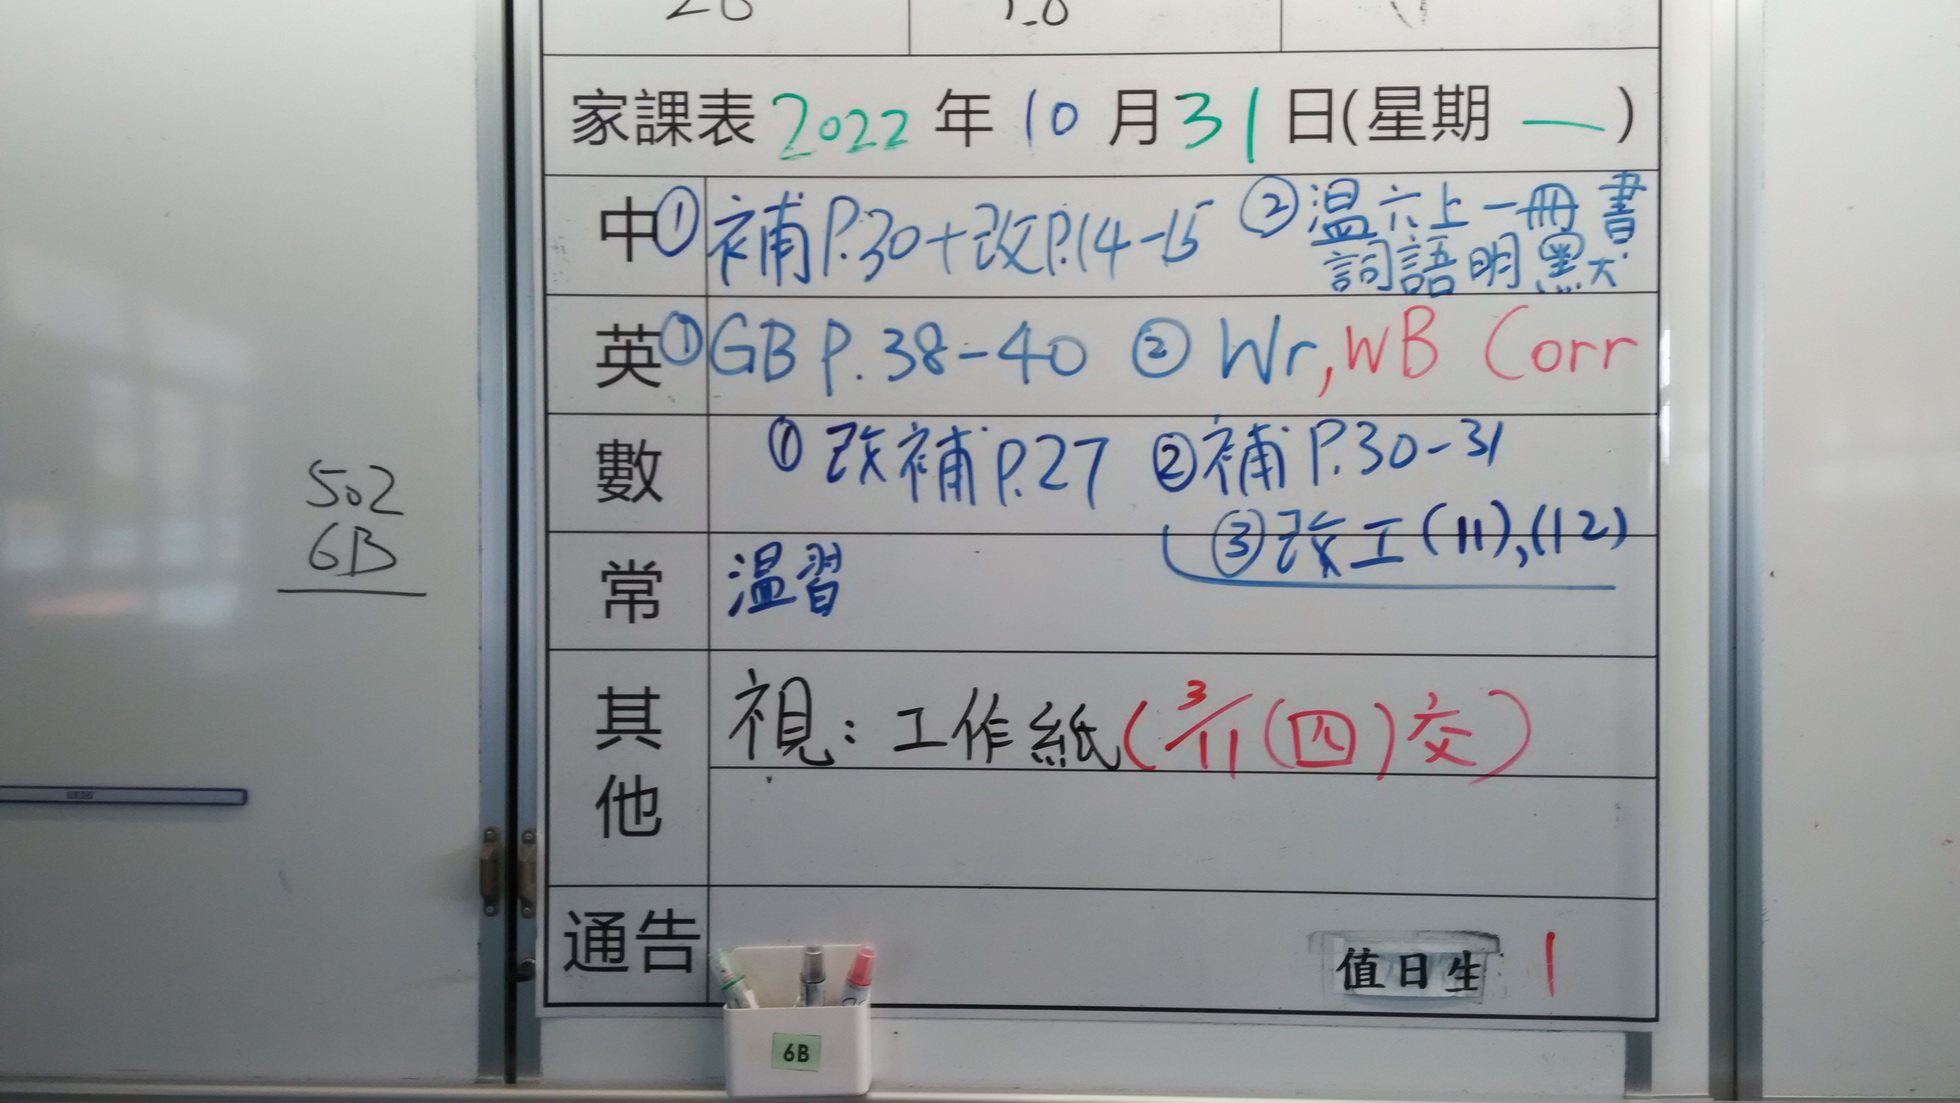 家課表 2022 年 10 月 31 日(星期 一)
中 ① 補P.30+改P.14-15 ② 温六上一冊書
詞語明默
英 ① GB P.38-40 ② Wr, WB Corr
數 ① 改補P.27 ② 補P.30-31
③ 改工(11),(12)
常 温習
其他 視:工作紙(3/11(四)交)
通告 值日生 1
502
6B
6B